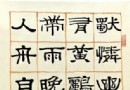 獨憐幽
有黃鸝
帶雨晚
人舟自